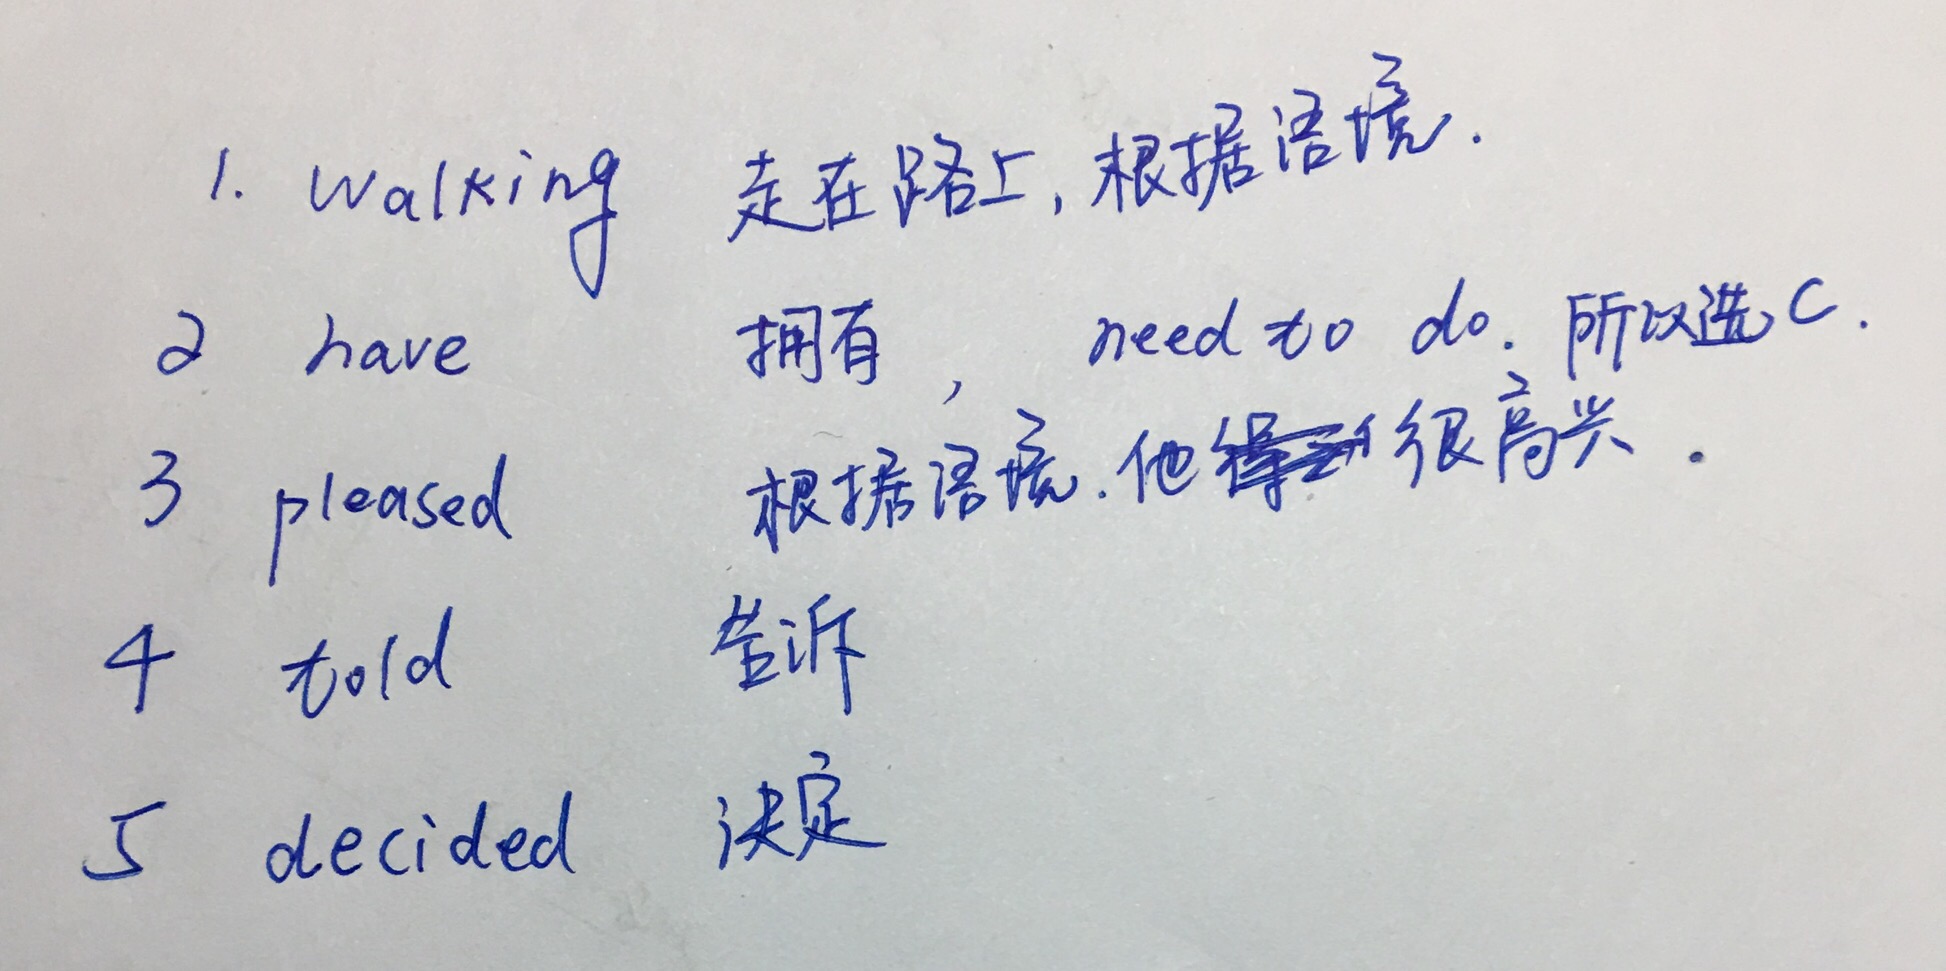 1. walking 走在路上,根据语境.
2 have 拥有, need to do. 所以选C.
3 pleased 根据语境.他很高兴.
4 told 告诉
5 decided 决定